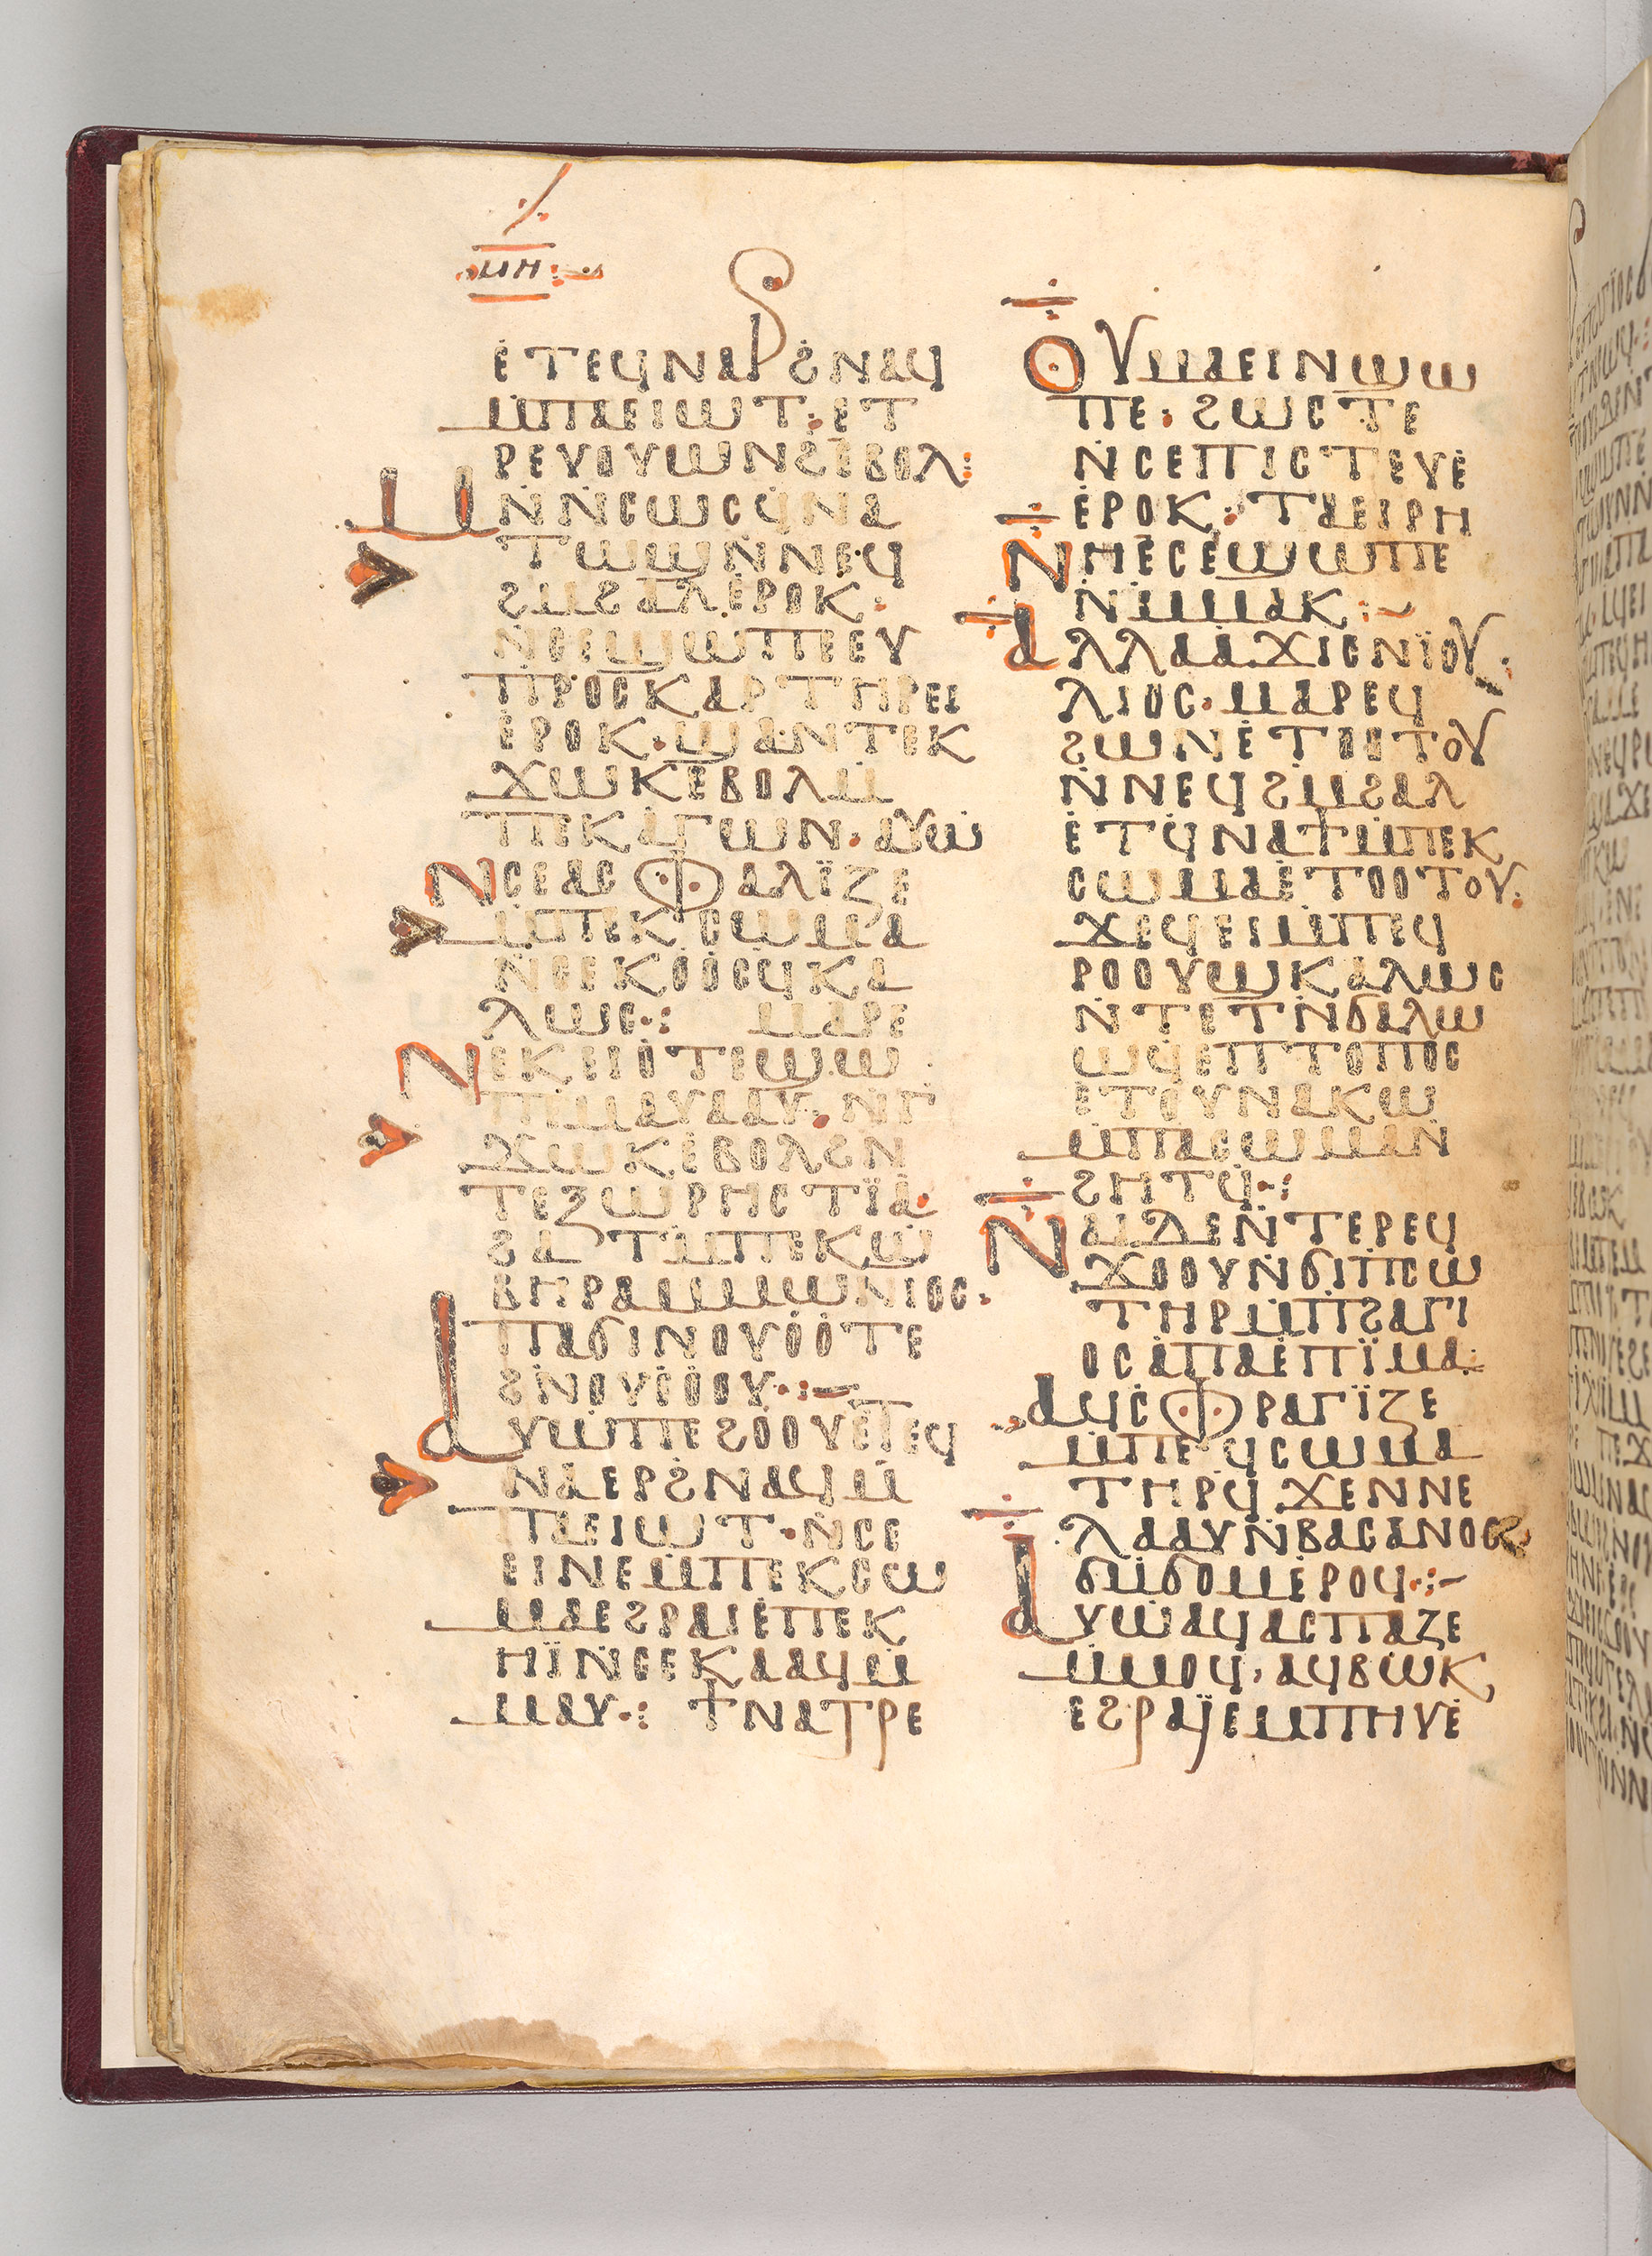 ⲙⲏ
ⲉⲧⲉϥⲛⲁⲣϩⲛⲁϥ
ⲙⲡⲁⲉⲓⲱⲧ: ⲉⲧ
ⲣⲉⲩⲟⲩⲱⲛϩⲉⲃⲟⲗ:
ⲙⲛⲛⲥⲱⲥϥⲛⲁ
ⲧⲱϣⲛⲛⲉϥ
ϩⲙϩⲁⲗⲉⲣⲟⲕ:
ⲛⲥⲉϣⲱⲡⲉⲉⲩ
ⲡⲣⲟⲥⲕⲁⲣⲧⲏⲣⲉⲓ
ⲉⲣⲟⲕ·ϣⲁⲛⲧⲉⲕ
ϫⲱⲕⲉⲃⲟⲗⲙ
ⲡⲉⲕⲁⲅⲱⲛ·ⲁⲩⲱ
ⲛⲥⲉⲁⲥⲫⲁⲗⲓⲍⲉ
ⲙⲡⲉⲕⲥⲱⲙⲁ
ⲛⲥⲉⲕⲟⲟⲥϥⲕⲁ
ⲗⲱⲥ·: ⲙⲁⲣⲉ
ⲛⲉⲕⲉⲓⲟⲧⲉϣⲱ
ⲡⲙⲁⲩⲁⲁⲩ·ⲛⲅ
ϫⲱⲕⲉⲃⲟⲗϩⲛ
ⲧⲉⲍⲱⲣⲏⲥⲧⲓⲁ·
ϩⲁⲧⲙⲡⲉⲕϣ
ⲃⲏⲣⲁⲙⲙⲱⲛⲓⲟⲥ:
ⲡⲁϭⲓⲛⲟⲩⲟⲟⲧⲉ
ϩⲛⲟⲩⲥⲟⲟⲩ·:-
ⲁⲩⲱⲡⲉϩⲟⲟⲩⲉⲧⲉϥ
ⲛⲁⲉⲣϩⲛⲁϥⲙ
ⲡⲁⲉⲓⲱⲧ·ⲛⲥⲉ
ⲉⲓⲛⲉⲙⲡⲉⲕⲥⲱ
ⲙⲁⲉϩⲣⲁⲓⲉⲡⲉⲕ
ⲏⲓⲛⲥⲉⲕⲁⲁϥⲙ
ⲙⲁⲩ·: ϯⲛⲁⲧⲣⲉ
ⲟⲩⲙⲁⲉⲓⲛϣⲱ
ⲡⲉ: ϩⲱⲥⲧⲉ
ⲛⲥⲉⲡⲓⲥⲧⲉⲩⲉ
ⲉⲣⲟⲕ: ⲧⲁⲉⲓⲣⲏ
ⲛⲏⲉⲥⲉϣⲱⲡⲉ
ⲛⲙⲙⲁⲕ:~
ⲁⲗⲗⲁⲁϫⲓⲥⲛⲓⲟⲩ
ⲗⲓⲟⲥ·ⲙⲁⲣⲉϥ
ϩⲱⲛⲉⲧⲟⲟⲧⲟⲩ
ⲛⲛⲉϥϩⲙϩⲁⲗ
ⲉⲧϥⲛⲁϯⲙⲡⲉⲕ
ⲥⲱⲙⲁⲉⲧⲟⲟⲧⲟⲩ:
ϫⲉϥⲉⲓⲙⲡⲉϥ
ⲣⲟⲟⲩϣⲕⲁⲗⲱⲥ
ⲛⲧⲉⲧⲛϭⲁⲗⲱ
ⲱϥⲉⲡⲧⲟⲡⲟⲥ
ⲉⲧⲟⲩⲛⲁⲕⲱ
ⲙⲡⲁⲥⲱⲙⲁⲛ
ϩⲏⲧϥ·:
ⲛⲁⲓⲇⲉⲛⲧⲉⲣⲉϥ
ϫⲟⲟⲩⲛϭⲓⲡⲥⲱ
ⲧⲏⲣⲙⲡϩⲁⲅⲓ
ⲟⲥⲁⲡⲁⲉⲡⲓⲙⲁ·
ⲁϥⲥⲫⲣⲁⲅⲓⲍⲉ
ⲙⲡⲉϥⲥⲱⲙⲁ
ⲧⲏⲣϥϫⲉⲛⲛⲉ
ⲗⲁⲁⲩⲛⲃⲁⲥⲁⲛⲟⲥ
ϭⲙϭⲟⲙⲉⲣⲟϥ·:-
ⲁⲩⲱⲁϥⲁⲥⲡⲁⲍⲉ
ⲙⲙⲟϥ·ⲁϥⲃⲱⲕ
ⲉϩⲣⲁⲓⲉⲙⲡⲏⲩⲉ